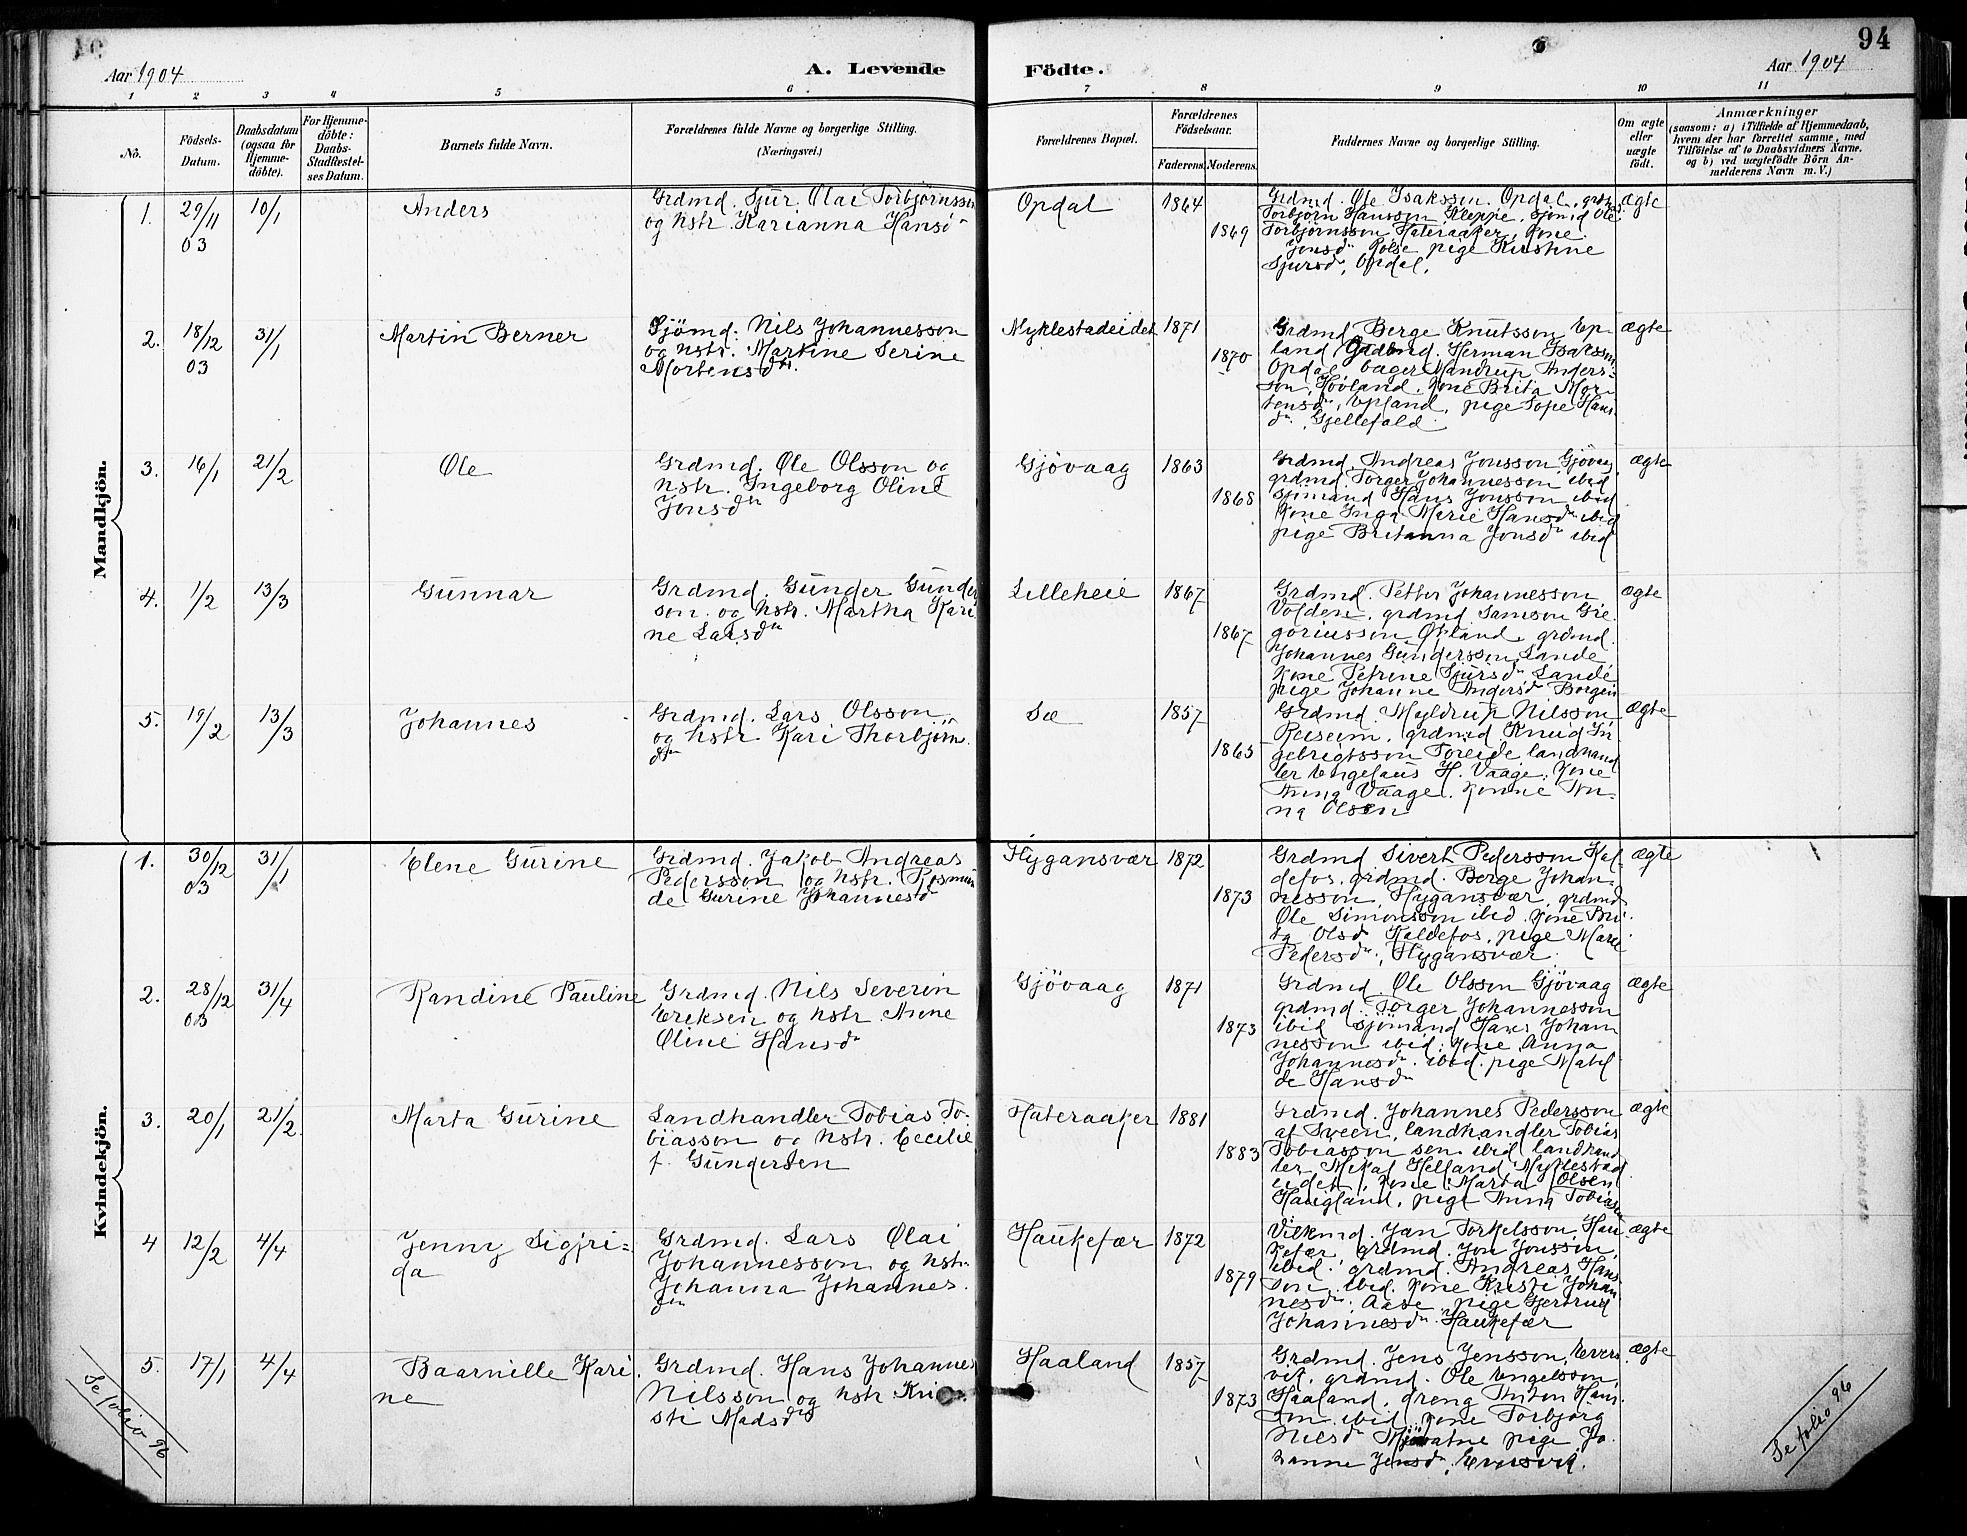 94
Aar 1904
A. Levende
Födte.
Aar 1904
1 2 3 4 5 6 7 8 9 10 11
No.
Födsels-
Datum.
Daabsdatum
(ogsaa for
Hjemme-
döbte).
For Hjemme-
döbte:
Daabs-
Stadfæstel-
ses Datum.
Barnets fulde Navn.
Forældrenes fulde Navne og borgerlige Stilling.
(Næringsvei.)
Forældrenes Bopæl.
Forældrenes
Födselsaar.
Faderens.
Moderens.
Faddernes Navne og borgerlige Stilling.
Om ægte
eller
uægte
födt.
Anmærkninger
(saasom: a) i Tilfælde af Hjemmedaab,
hvem der har forrettet samme, med
Tilföielse af to Daabsvidners Navne.
og b) ved uægtefödte Börn An-
melderens Navn m. V.)
Mandkjön.
1.
29/11
03
10/1
Anders
Grdmd. Sjur Olai Torbjørnsson
og hstr. Karianna Hansd
Opdal
1864
1869
Grdmd. Ole Isaksson Opdal, grdmd.
Torbjørn Hansson Kleppe, sjømd Ole
Torbjørnsson Hateraaker, kone
Jonsd Rolse pige Kirstine
Sjursd, Opdal.
ægte
2.
18/12
03
31/1
Martin Berner
Sjömd. Nils Johannesson
og hstr. Martine Serine
Mortensdtr.
Myklestadeidet
1871
1870
Grdmd Berge Knutsson Ep-
land Grdmd. Herman Isaksson
Opdal bager Mandrup Anders-
son, Hovland, kone Brita Mor-
tensd, Epland, pige Sofie Hans
dr. Gjellefald
ægte
3.
16/1
21/2
Ole
Grdmd. Ole Olsson og
hstr. Ingeborg Oline
Jonsdtr
Gjövaag
1863
1868
Grdmd. Andreas Jonsson Gjövaag
grdmd. Torger Johannesson ibid
sjömand Hans Jonsson ibid
kone Inga Marie Hansdr ibid
pige Britanna Jonsdr ibid
ægte
4.
1/2
13/3
Gunnar
Grdmd. Gunder Gunder
son og hstr. Martha Kari
ne Larsdtr
Lilleheie
1867
1867
Grdmd. Petter Johannesson
Volden, grdmd Samson Gre-
goriusson Øvland, grdmd.
Johannes Gundersson Lande
kone Petrine Sjursdr Lande
pige Johanne Andersd Borgen
ægte
5.
19/2
13/3
Johannes
Grdmd. Lars Olsson
og hstr Kari Thorbjørn
dtr
Sæ
1857
1865
Grdmd. Myldrup Nilsson
Reiseim, grdmd Knud In
gebrigtsson Toreide landhand
ler Engelaus H. Vaage, kone
Anna Vaage, kone An-
na Olsen
ægte
Kvindekjön.
1.
30/12
03
31/1
Elene Gurine
Grdmd. Jakob Andreas
Pedersson og hstr. Rosmun
de Gurine Johannesd
Flygansvær
1872
1873
Grdmd Sivert Pedersson Kal-
defos, grdmd. Berge Johan-
nesson, Flygansvær, grdmd
Ole Simonsson ibid kone Bri-
ta Olsd Kaldefos, pige Marie
Pedersdr, Flygansvær.
ægte
2.
28/12
03
31/4
Randine Pauline
Grdmd. Nils Severin
Eriksen og hstr. Anne
Oline Hansdr
Gjövaag
1871
1873
Grdmd. Ole Olsson Gjövaag
grdmd. Torger Johannesson
ibid sjömand Hans Johan
nesson ibid, kone Anna
Johannesdr. ibid. pige Matil
de Hansdr
ægte
3.
20/1
21/2
Marta Gurine
Landhandler Tobias To-
biasson og hstr. Cecilie
f. Gundersen
Hateraaker
1881
1883
Grdmd. Johannes Pedersson
af Sveen, landhandler Tobias
Tobiasson sen ibid landhand
ler Mikal Helland Myklestad
eidet, kone Marta Olsen
Haugland, pige Anna Tobiassen
ægte
4
12/2
4/4
Jenny Sigfri-
da
Grdmd. Lars Olai
Johannesson og hstr.
Johanna Johannes
dtr
Haukefær
1872
1879
Vilkmd. Jan Torkelsson, Hau
kefær, grdmd. Jon Jonsson,
ibid. grdmd. Andreas Hans
son ibid. kone Kristi Johan
nesdr. Aase, pige Gjertrud
Johannesdr. Haukefær
ægte
5.
17/1
4/4
Baarnille Kari
ne
Grdmd. Hans Johannes
Nilsson og hstr Kri-
sti Madsdtr
Haaland
1857
1873
Grdmd. Jens Jensson, Evers
vik, grdmd. Ole Engelsson,
Haaland, dreng Anton Hans-
son ibid, kone Torbjørg
Nilsdr pige Jo
hanne Jensdr, Eversvik.
ægte
Se folio 96
Se folio 96